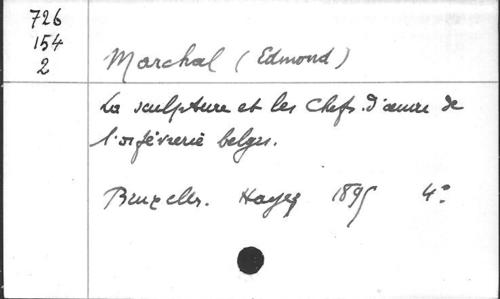 726
154
2
Marchal (Edmond)
La sculpture et les Chefs. d'œuvre de
l'orfévrerie belges.
Bruxelles. Hayez 1895 4°